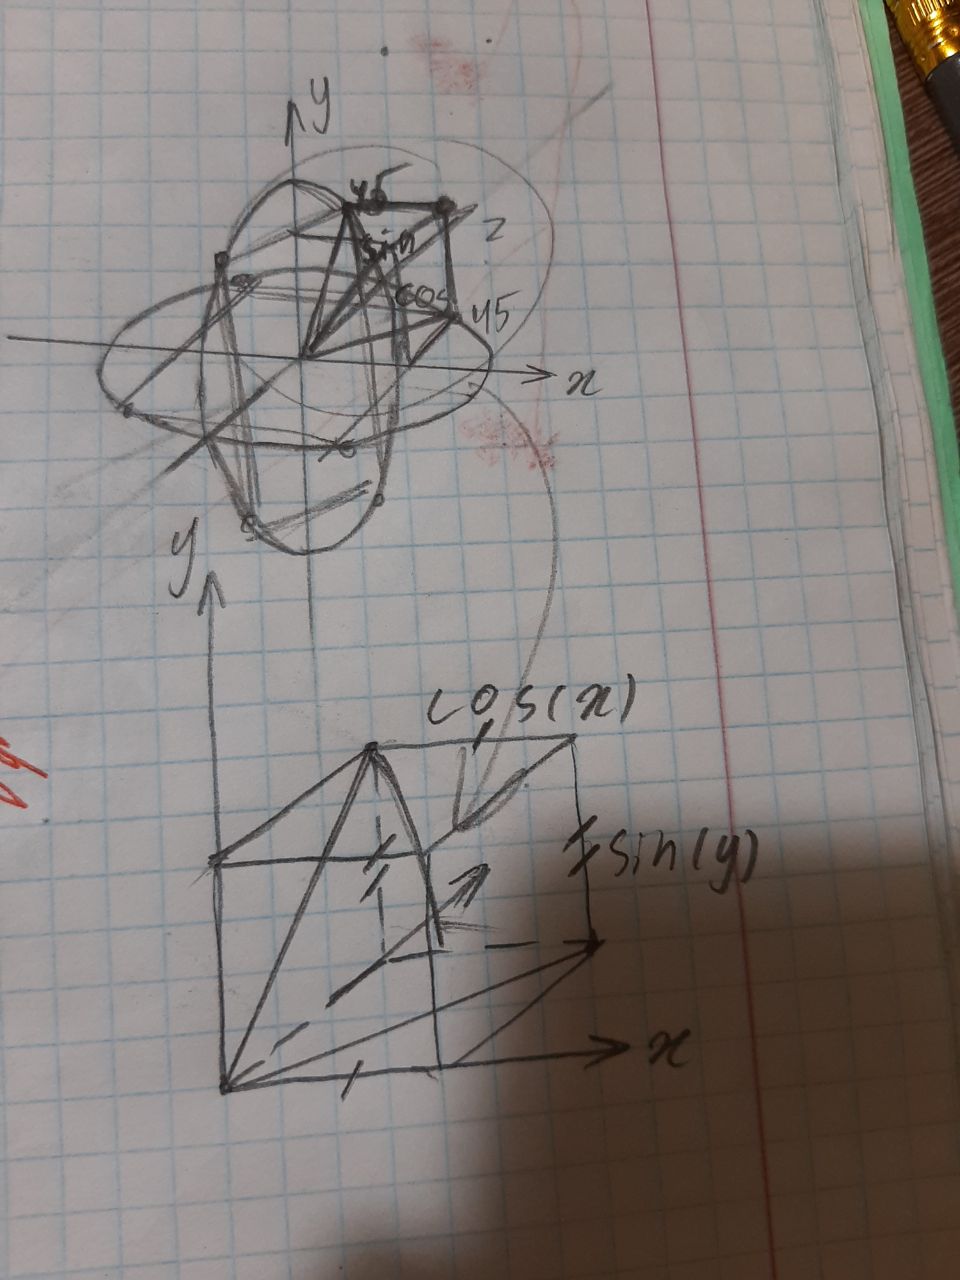 y
45
z
sin
cos
45
x
y
cos(x)
sin(y)
x